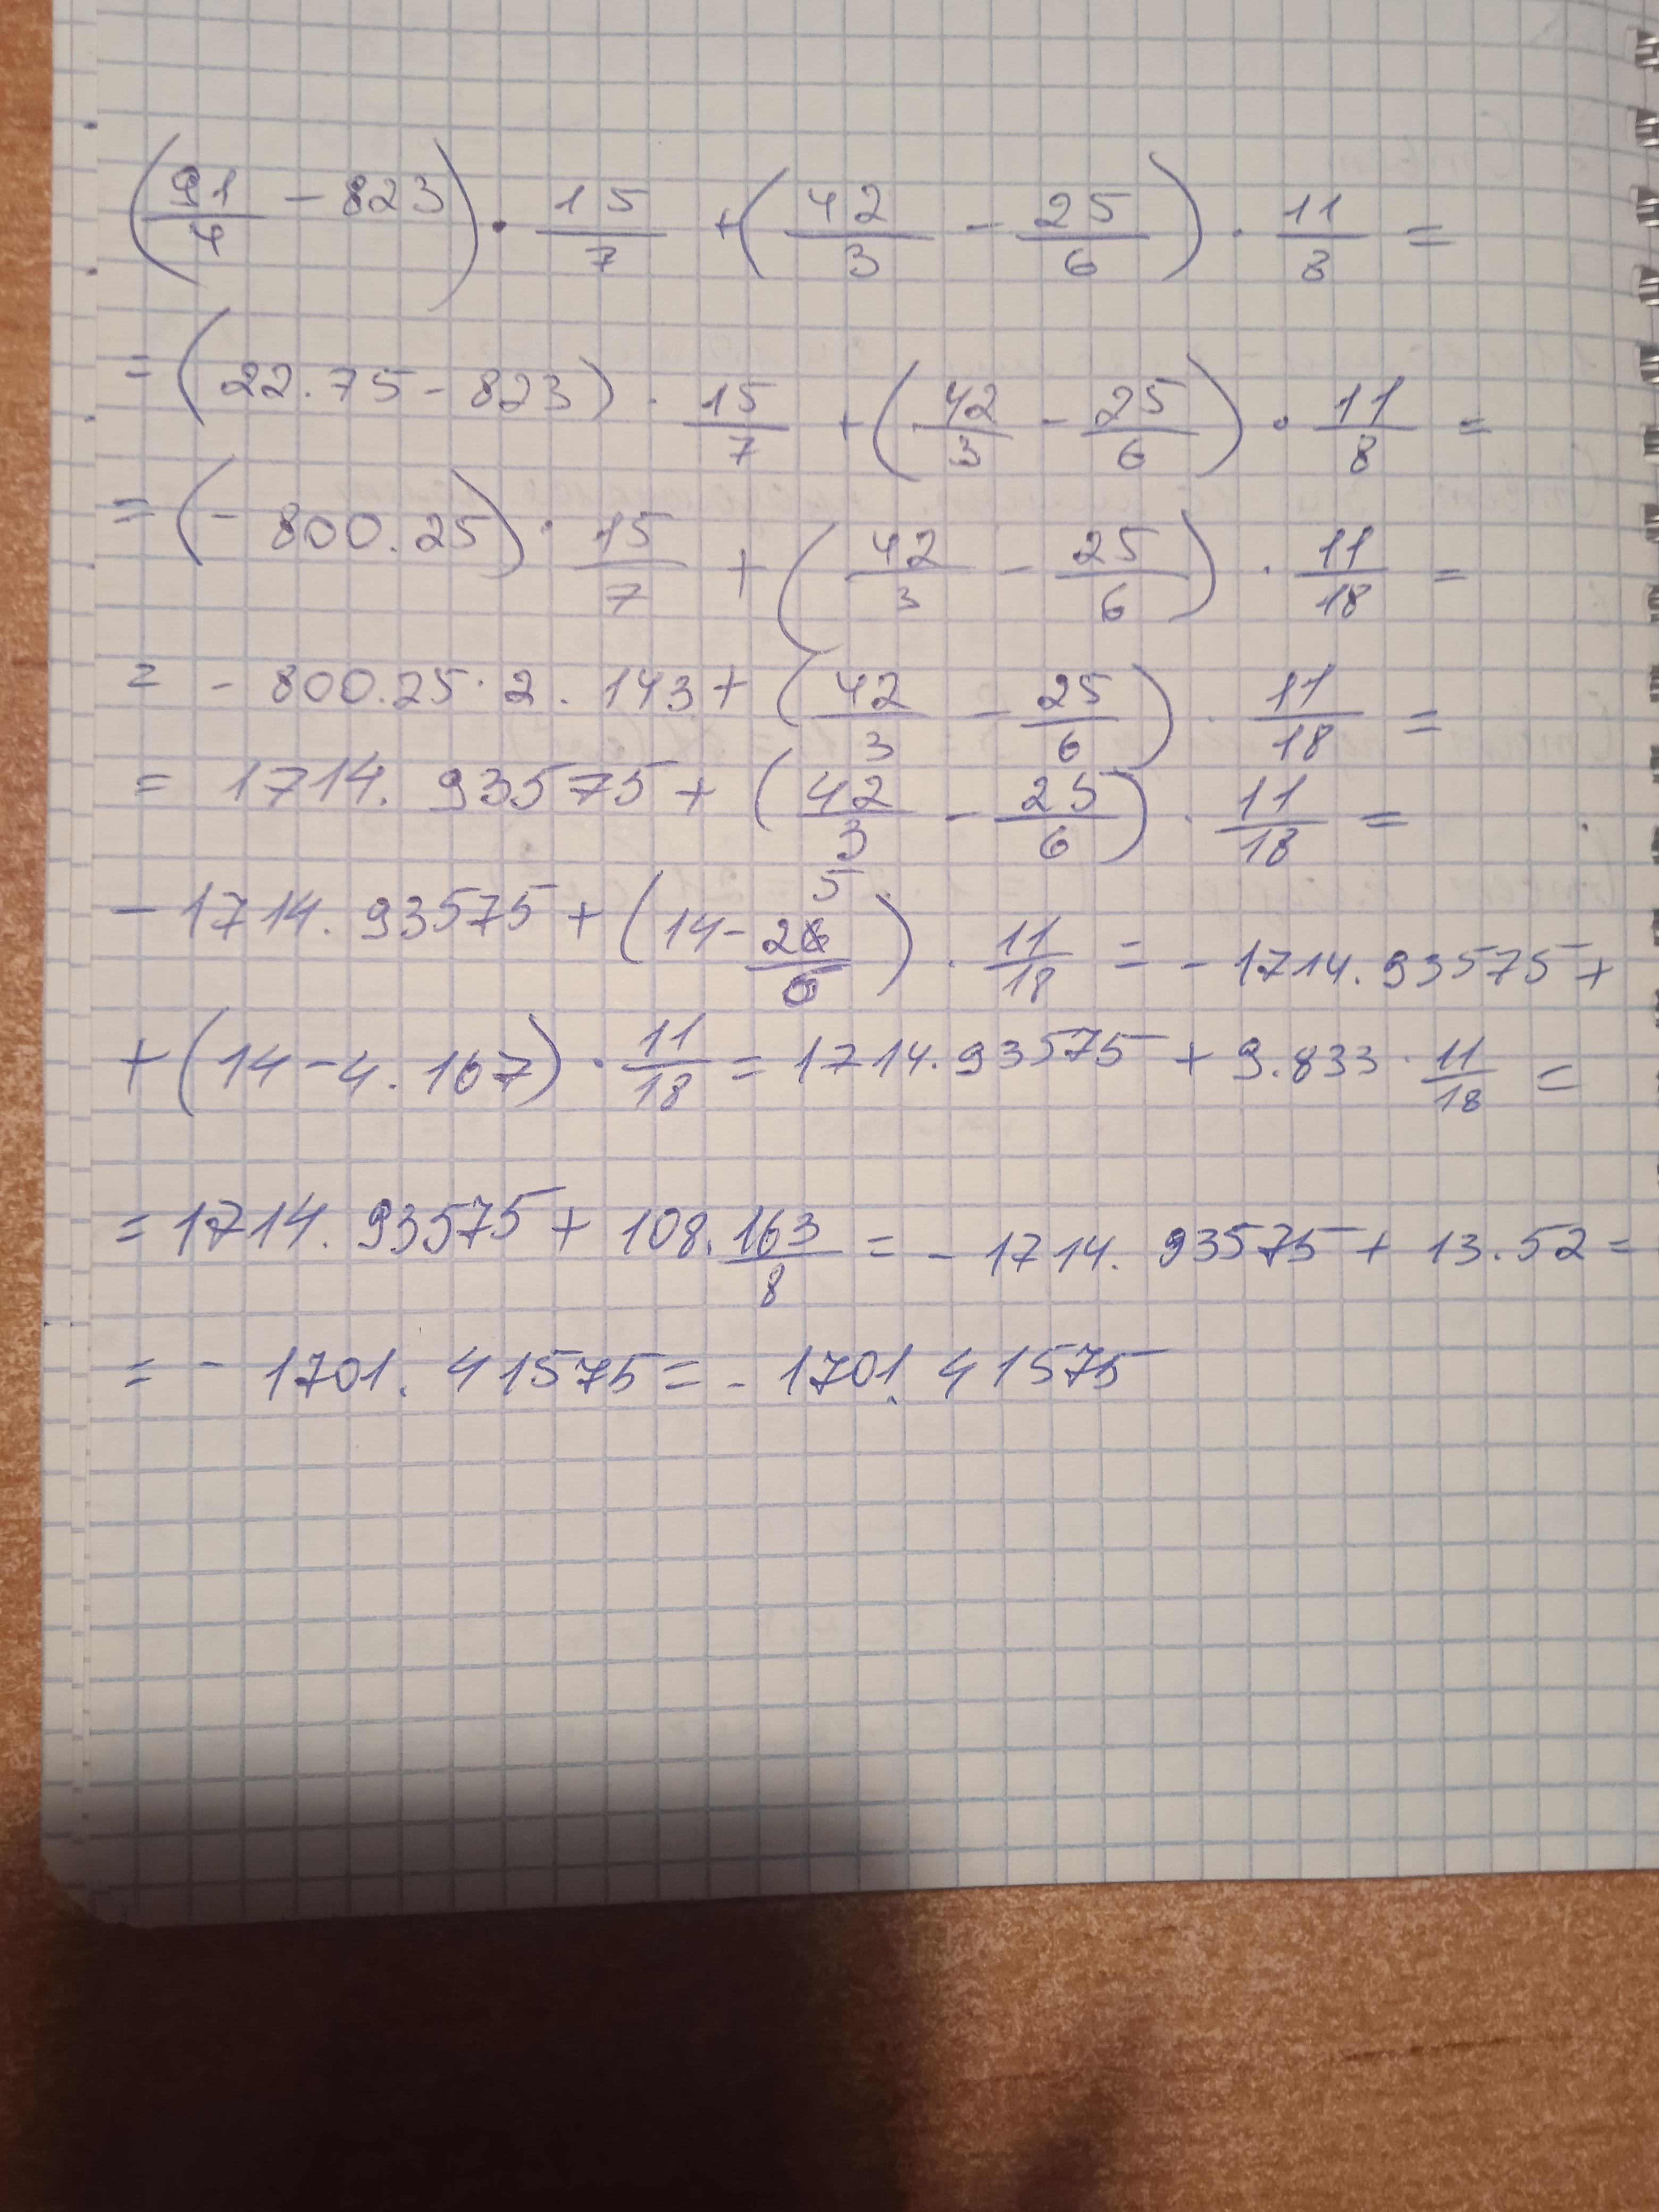 (91/4 - 823) · 15/7 + (42/3 - 25/6) · 11/8 =
= (22.75 - 823) · 15/7 + (42/3 - 25/6) · 11/8 =
= (- 800.25) · 15/7 + (42/3 - 25/6) · 11/18 =
= - 800.25 · 2.143 + (42/3 - 25/6) · 11/18 =
= 1714.93575 + (42/3 - 25/6) · 11/18 =
- 1714.93575 + (14 - 25/6) · 11/18 = - 1714.93575 +
+ (14 - 4.167) · 11/18 = 1714.93575 + 9.833 · 11/18 =
= 1714.93575 + 108.163/8 = - 1714.93575 + 13.52 =
= - 1701.41575 = - 1701.41575